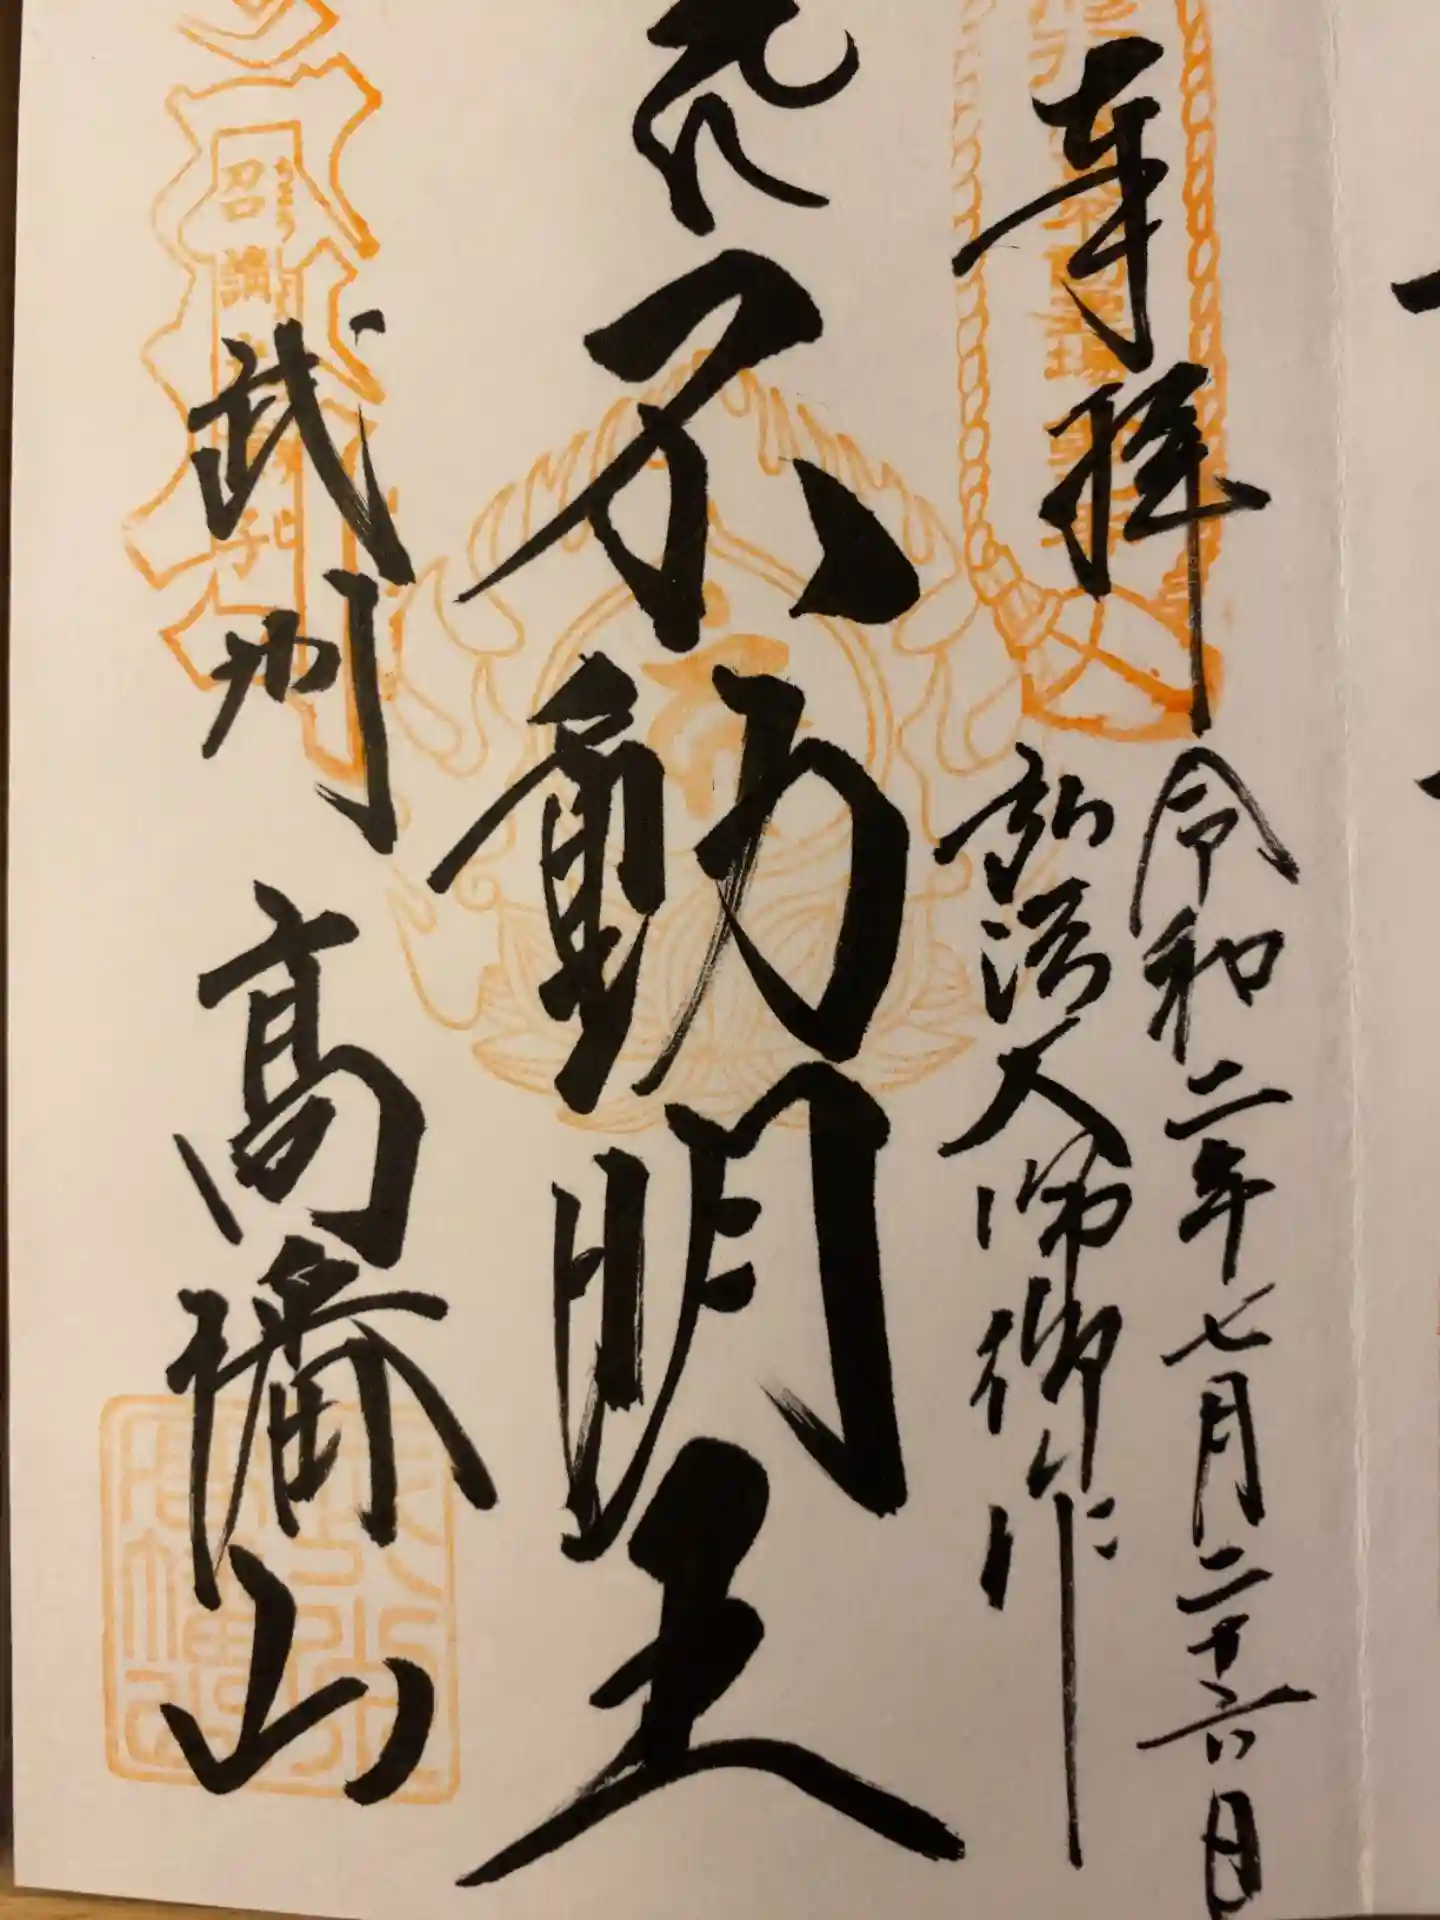 奉拝
令和二年七月二十六日
弘法大師御作
不動明王
武州
高幡山